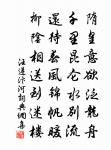 隋皇意欲泛龍舟
千里昆侖水別流
還待春風錦帆暖
柳陰相送到迷樓
汪遵汴河詞典網集